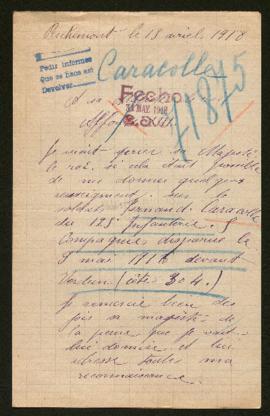 le 18 avril 1918
Pedir informes
Que se hace est
Devolver
Caracolle
71875
Fecho
31 MAY. 1918
A sa
Alfon XIII
Je vient prier sa Majesté
le roi si cela était possible
de me donner quelques
renseignement sur le
soldat Fernand Caracolle
du 125 Infanterie
Compagnie disparue le
9 mai 1916 devant
Verdun (côte 304.)
Je remercie bien des
fois sa majesté de
la peine que je vait
lui donner et lui
adresse toute ma
reconnaissance